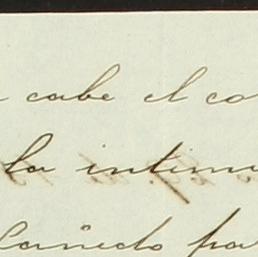 cabe el co
la intim
Cañedo pa